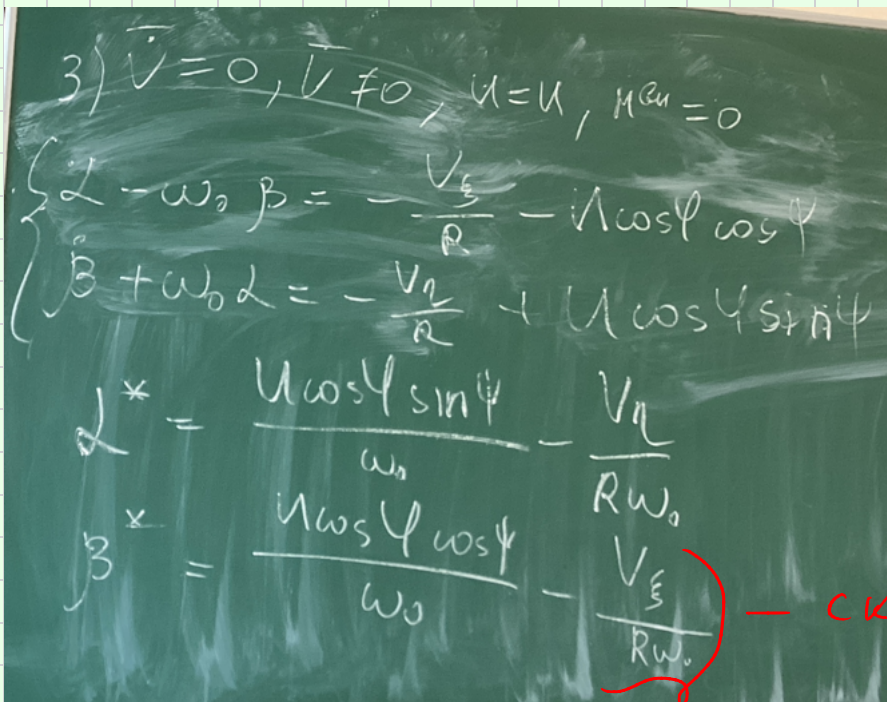 3) V̇̄ = 0, V̄ ≠ 0, u = u, M^вн = 0
α̇ - ω₀ β = - V_ξ / R - u cos φ cos ψ
β̇ + ω₀ α = - V_η / R + u cos φ sin ψ
α* = u cos φ sin ψ / ω₀ - V_η / Rω₀
β* = u cos φ cos ψ / ω₀ - V_ξ / Rω₀ — ск